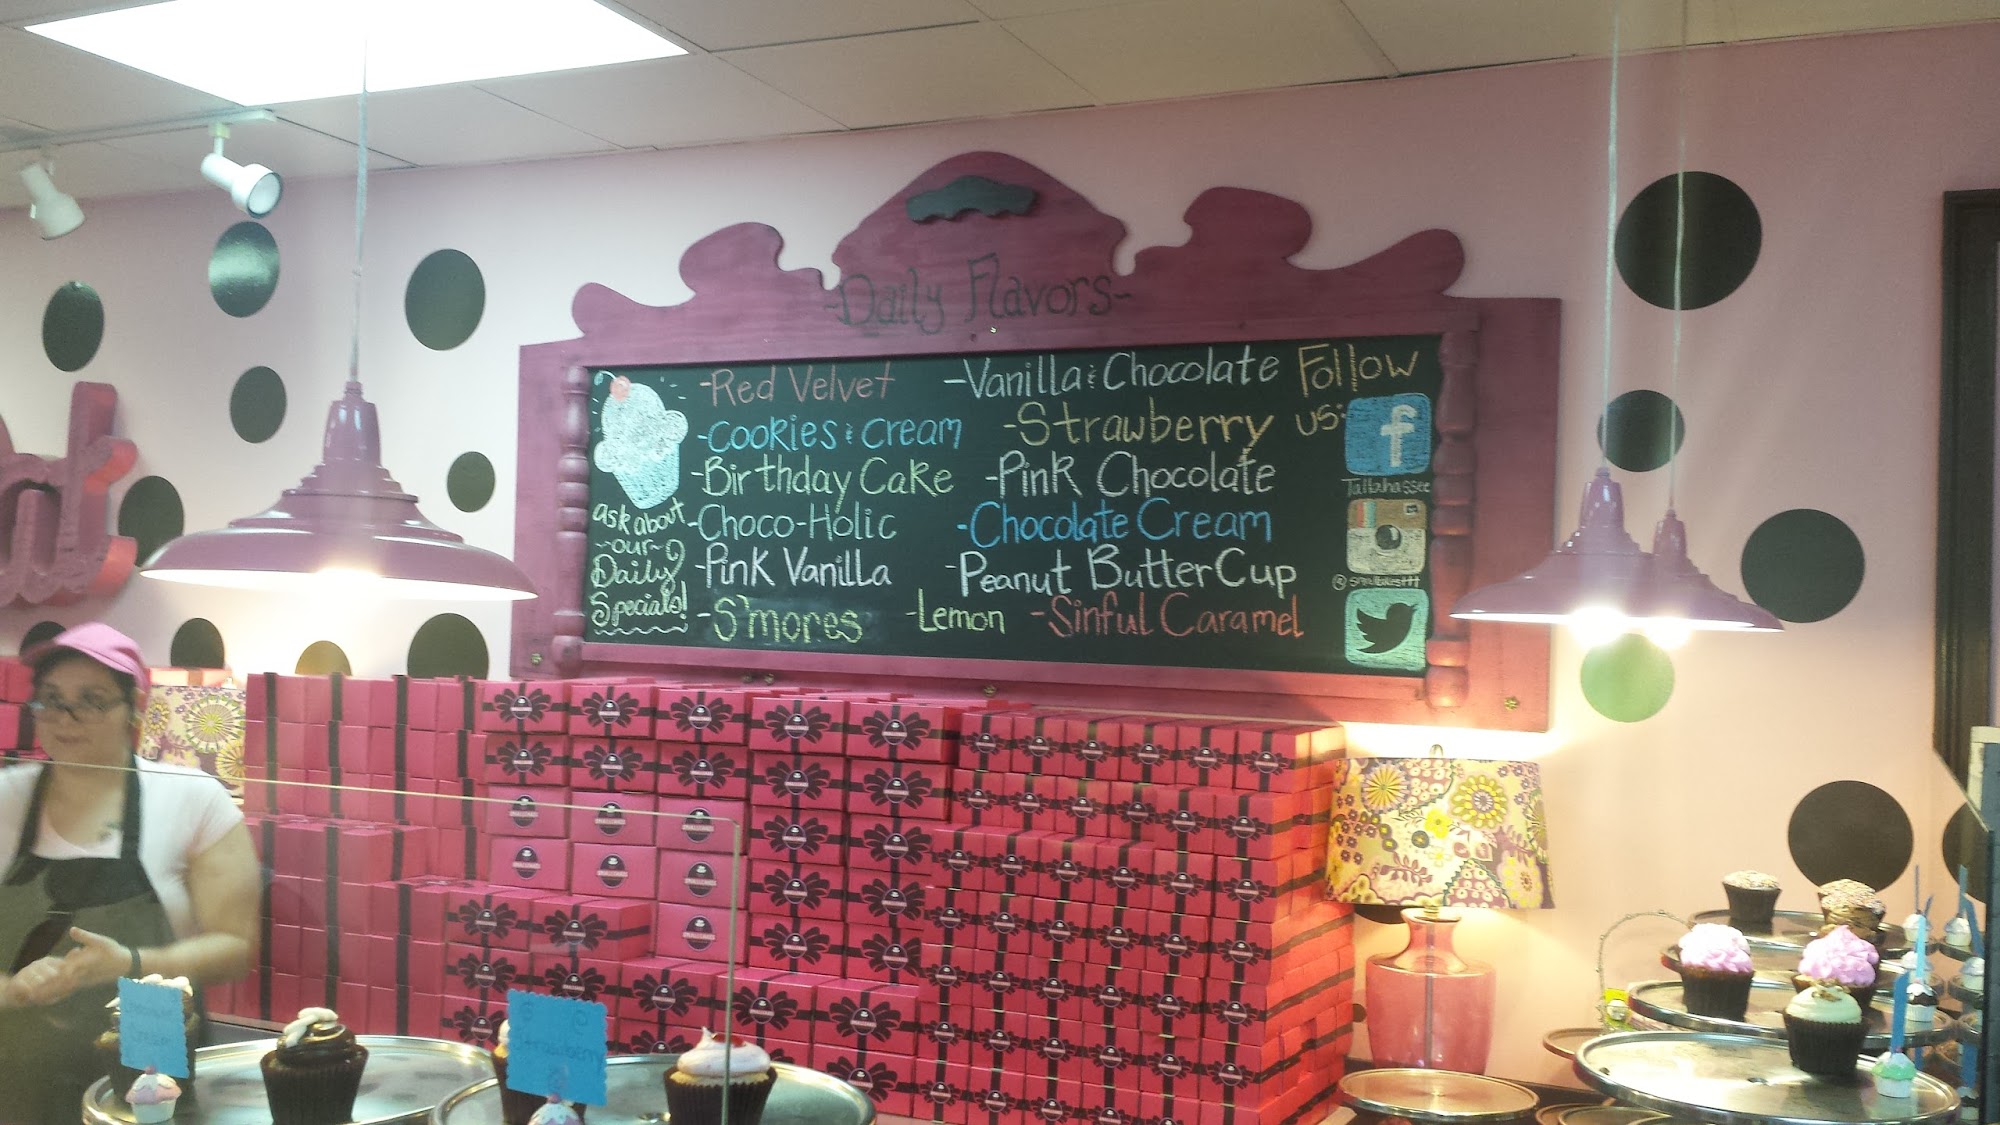 ~Daily Flavors~
-Red Velvet
-Cookies & Cream
-Birthday Cake
-Choco-Holic
-Pink Vanilla
-S'mores
-Vanilla & Chocolate
-Strawberry
-Pink Chocolate
-Chocolate Cream
-Peanut Butter Cup
-Lemon
-Sinful Caramel
ask about
~our~
Daily
Specials!
Follow
us:
f
Tallahassee
Cream
Strawberry